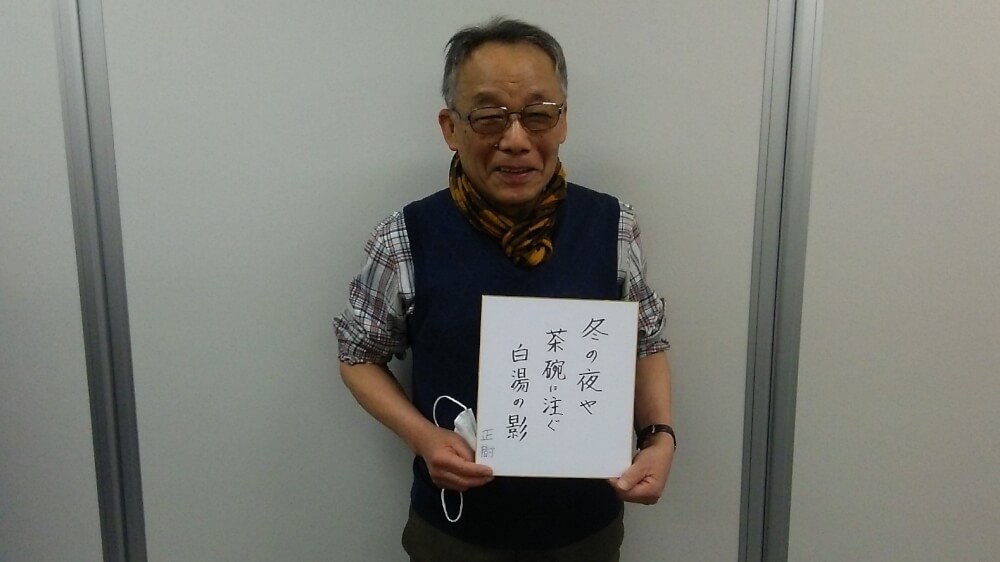 冬の夜や
茶碗に注ぐ
白湯の影
正樹